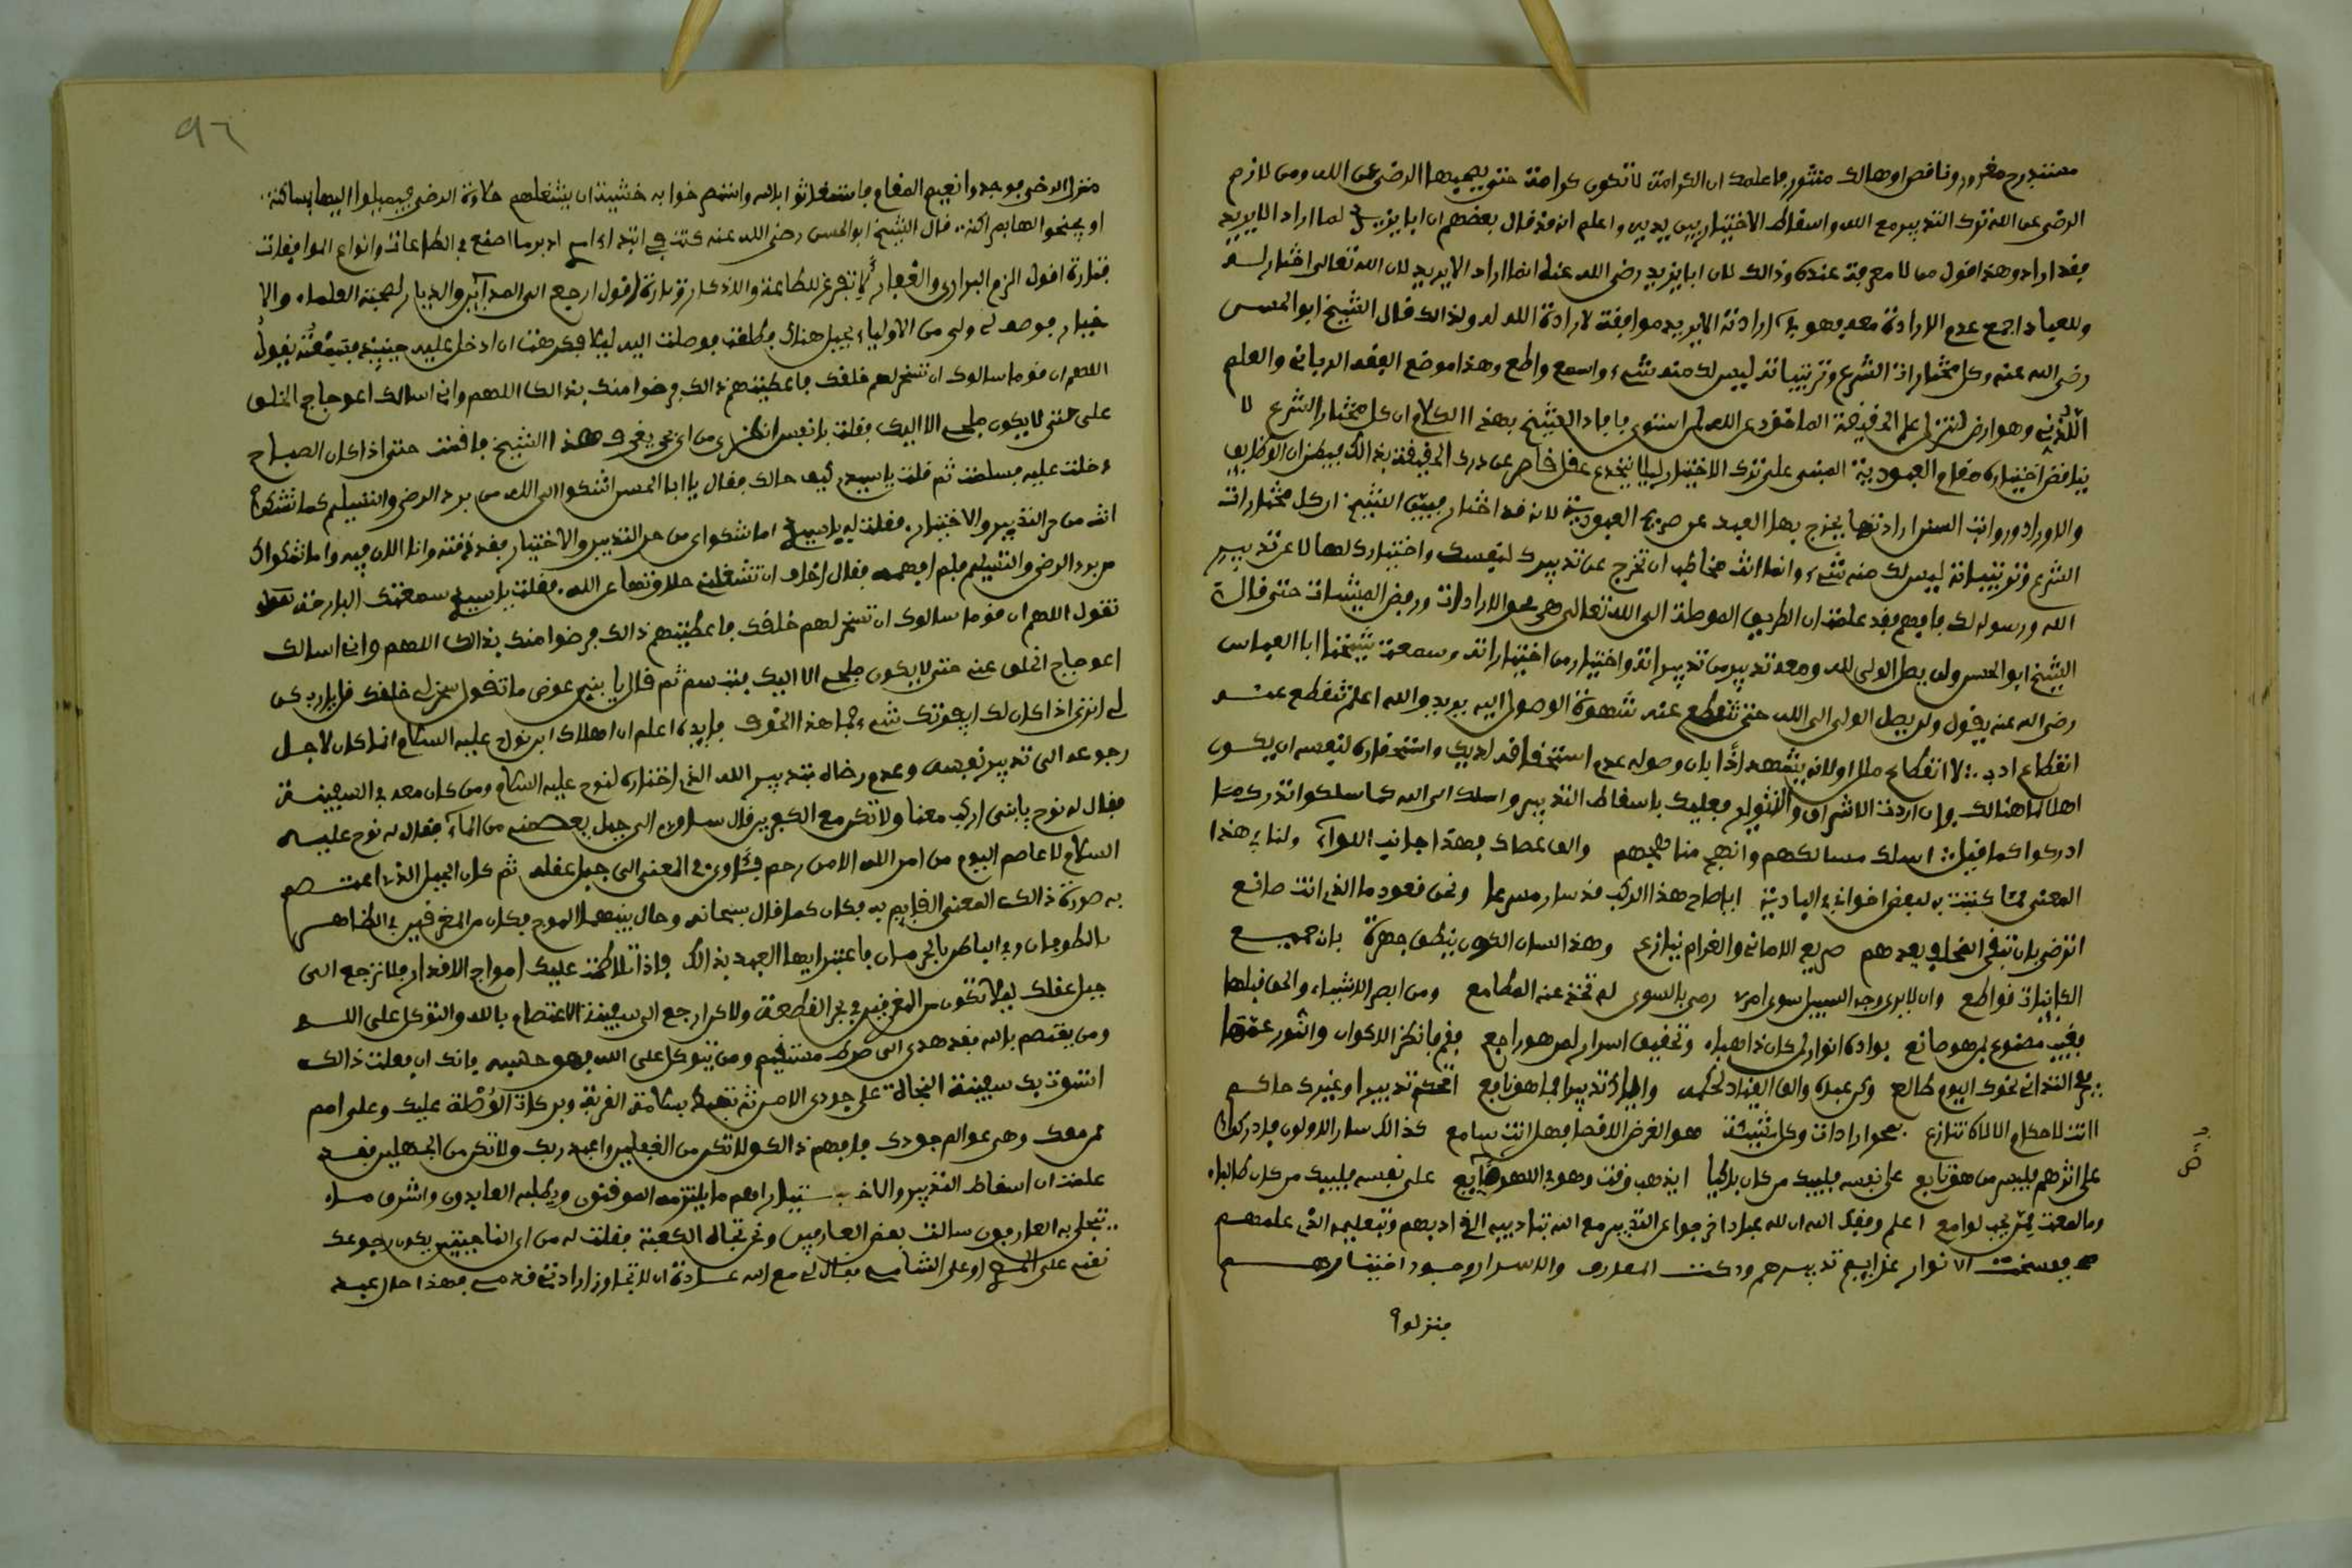 مستدرج مغرور وناقص او هالك مثبور فاعلمك ان الكرامة لا تكون كرامة حتى يصحبها الرضى عن الله ومن لازم
الرضى عن الله ترك التدبير مع الله واسقاط الاختيار بين يديه واعلم انه قد قال بعضهم ان ابا يزيد لما اراد الا يريد
فقد اراد وهذا قول من لا معرفة عنده وذالك لان ابا يزيد رضي الله عنه انما اراد الا يريد لان الله تعالى اختار له
وللعباد اجمع عدم الارادة معه فهو في ارادته الا يريد موافقة لارادة الله له ولذالك قال الشيخ ابو الحسن
رضي الله عنه وكل مختارات الشرع وترتيباته ليس لك منه شيء واسمع واطع وهذا موضع الفقه الرباني والعلم
اللدني وهو ارض لتنزل علم الحقيقة الماخوذ عن الله لمن استوى فافاد الشيخ بهذا الكلام ان كل مختار الشرع لا
يناقض اختياره مقام العبودية المبني على ترك الاختيار ليلا ينخدع عقل قاصر عن درك الحقيقة بذالك فيظن ان الوظايف
والاوراد ورواتب السنن ارادتها يخرج بها العبد عن صريح العبودية لانه قد اختار فبين الشيخ ان كل مختارات
الشرع وترتيباته ليس لك منه شيء وانما انت مخاطب ان تخرج عن تدبيرك لنفسك واختيارك لها لا عن تدبير
الله ورسوله لك فافهم فقد علمت ان الطريق الموصلة الى الله تعالى هي محو الارادات ورفض المشيئات حتى قال
الشيخ ابو الحسن ولن يصل الولي لله ومعه تدبير من تدبيراته واختيار من اختياراته وسمعت شيخنا ابا العباس
رضي الله عنه يقول ولن يصل الولي الى الله حتى تنقطع عنه شهوة الوصول اليه يريد والله اعلم تنقطع عنه
انقطاع ادب لا انقطاع ملل او لانه يشهد اذا بان وصوله عدم استحقاقه لذلك واستحقاره لنفسه ان يكون
اهلا لما هنالك فان اردت الاشراق والتنوير فعليك باسقاط التدبير واسلك الى الله كما سلكوا تدرك ما
ادركوا كما قيل اسلك مسالكهم وانهج مناهجهم والق عصاك فهذا جانب الوادي ولنا في هذا
المعنى مما كتبت به لبعض اخواني في البادية ايا صاح هذا الركب قد سار مسرعا ونحن قعود ما الذي انت صانع
اترضى بان تبقى المخلف بعدهم صريع الاماني والغرام ينازع وهذا لسان الكون ينطق جهرة بان جميع
الكاينات قواطع وان لا يرى وجه السبيل سوى امرئ رمى بالسوى لم تختدعه المطامع ومن ابصر الاشياء والحق قبلها
فغيب مصنوع لمن هو صانع بواده انوار لمن كان ذاهبا وتحقيق اسرار لمن هو راجع فقم فانظر الاكوان والنور عمها
ففجر التداني نحوك اليوم طالع وكن عبده والق القياد لحكمه واياك تدبيرا فما هو نافع اتحكم تدبيرا وغيرك حاكم
اانت لاحكام الالاه تنازع فمحو ارادات وكل مشيئة هو الغرض الاقصى فهل انت سامع كذالك سار الاولون فادركوا
على اثرهم فليسر من هو تابع على نفسه فليبك من كان باكيا ايذهب وقت وهو في اللهو ضايع على نفسه فليبك من كان طالبا
وما لمعت ممن يحب لوامع اعلم وفقك الله ان لله عبادا خرجوا عن التدبير مع الله بتاديبه الذي ادبهم وبتعليمه الذي علمهم
ففسخت الانوار عزايم تدبيرهم ودكت المعارف والاسرار وجود اختيارهم
فنزلوا
ضايع
٩٦
منزل الرضى فوجدوا نعيم المقام فاستغاثوا بالله واستصرخوا به خشية ان يشغلهم حلاوة الرضى فيميلوا اليها بمساكنة
او يجنحوا لها بمراكنة قال الشيخ ابو الحسن رضي الله عنه كنت في ابتداء امري ادبر ما اصنع في الطاعات وانواع الموافقات
فتارة اقول الزم البراري والقفار لاتفرغ للطاعة والاذكار وتارة اقول ارجع الى المداين والديار لصحبة العلماء والا
خيار فوصف لي ولي من الاولياء بجبل هناك فطلعت فوصلت اليه ليلا فكرهت ان ادخل عليه حينيذ فسمعته يقول
اللهم ان قوما سالوك ان تسخر لهم خلقك فاعطيتهم ذالك فرضوا منك بذالك اللهم واني اسالك اعوجاج الخلق
علي حتى لا يكون ملجئي الا اليك فقلت يا نفس انظري من اي بحر يغرف هذا الشيخ فاقمت حتى اذا كان الصباح
دخلت عليه فسلمت ثم قلت يا سيدي كيف حالك فقال يا ابا الحسن اشكوا الى الله من برد الرضى والتسليم كما تشكوا
انت من حر التدبير والاختيار فقلت له يا سيدي اما شكواي من حر التدبير والاختيار فقد ذقته وانا الان فيه واما شكواك
من برد الرضى والتسليم فلم افهمه فقال اخاف ان تشغلني حلاوتهما عن الله فقلت يا سيدي سمعتك البارحة
تقول اللهم ان قوما سالوك ان تسخر لهم خلقك فاعطيتهم ذالك فرضوا منك بذالك اللهم واني اسالك
اعوجاج الخلق عني حتى لا يكون ملجئي الا اليك فتبسم ثم قال يا بني عوض ما تقول سخر لي خلقك قل يا رب كن
لي اترى اذا كان لك ايفوتك شيء فما هذا الخوف فايدة اعلم ان اهلاك ابن نوح عليه السلام انما كان لاجل
رجوعه الى تدبير نفسه وعدم رضاه بتدبير الله الذي اختاره لنوح عليه السلام ومن كان معه في السفينة
فقال له نوح يا بني اركب معنا ولا تكن مع الكفرين قال سئاوي الى جبل يعصمني من الماء فقال له نوح عليه
السلام لا عاصم اليوم من امر الله الا من رحم فئاوى في المعنى الى جبل عقله ثم كان الجبل الذي اعتصم
به صورة ذالك المعنى القايم به فكان كما قال سبحانه وحال بينهما الموج فكان من المغرقين في الظاهر
بالطوفان وفي الباطن بالحرمان فاعتبر ايها العبد بذالك فاذا تلاطمت عليك امواج الاقدار فلا ترجع الى
جبل عقلك ليلا تكون من المغرقين في بحر القطيعة ولاكن ارجع الى سفينة الاعتصام بالله والتوكل على الله
ومن يعتصم بالله فقد هدي الى صراط مستقيم ومن يتوكل على الله فهو حسبه فانك ان فعلت ذالك
استوت بك سفينة النجاة على جودي الامن ثم تهبط بسلامة القربة وبركات الوصلة عليك وعلى امم
ممن معك وهي عوالم وجودك فافهم ذالك ولا تكن من الغفلين واعبد ربك ولا تكن من الجهلين فقد
علمت ان اسقاط التدبير والاختيار اهم ما يلتزمه الموقنون ويطلبه العابدون واشرف ما
يتحلى به العارفون سالت بعض العارفين ونحن تجاه الكعبة فقلت له من اي الناحيتين يكون رجوعك
فقال لي مع الله عادة ان لا تجاوز ارادتي قدمي فهذا حال عبد